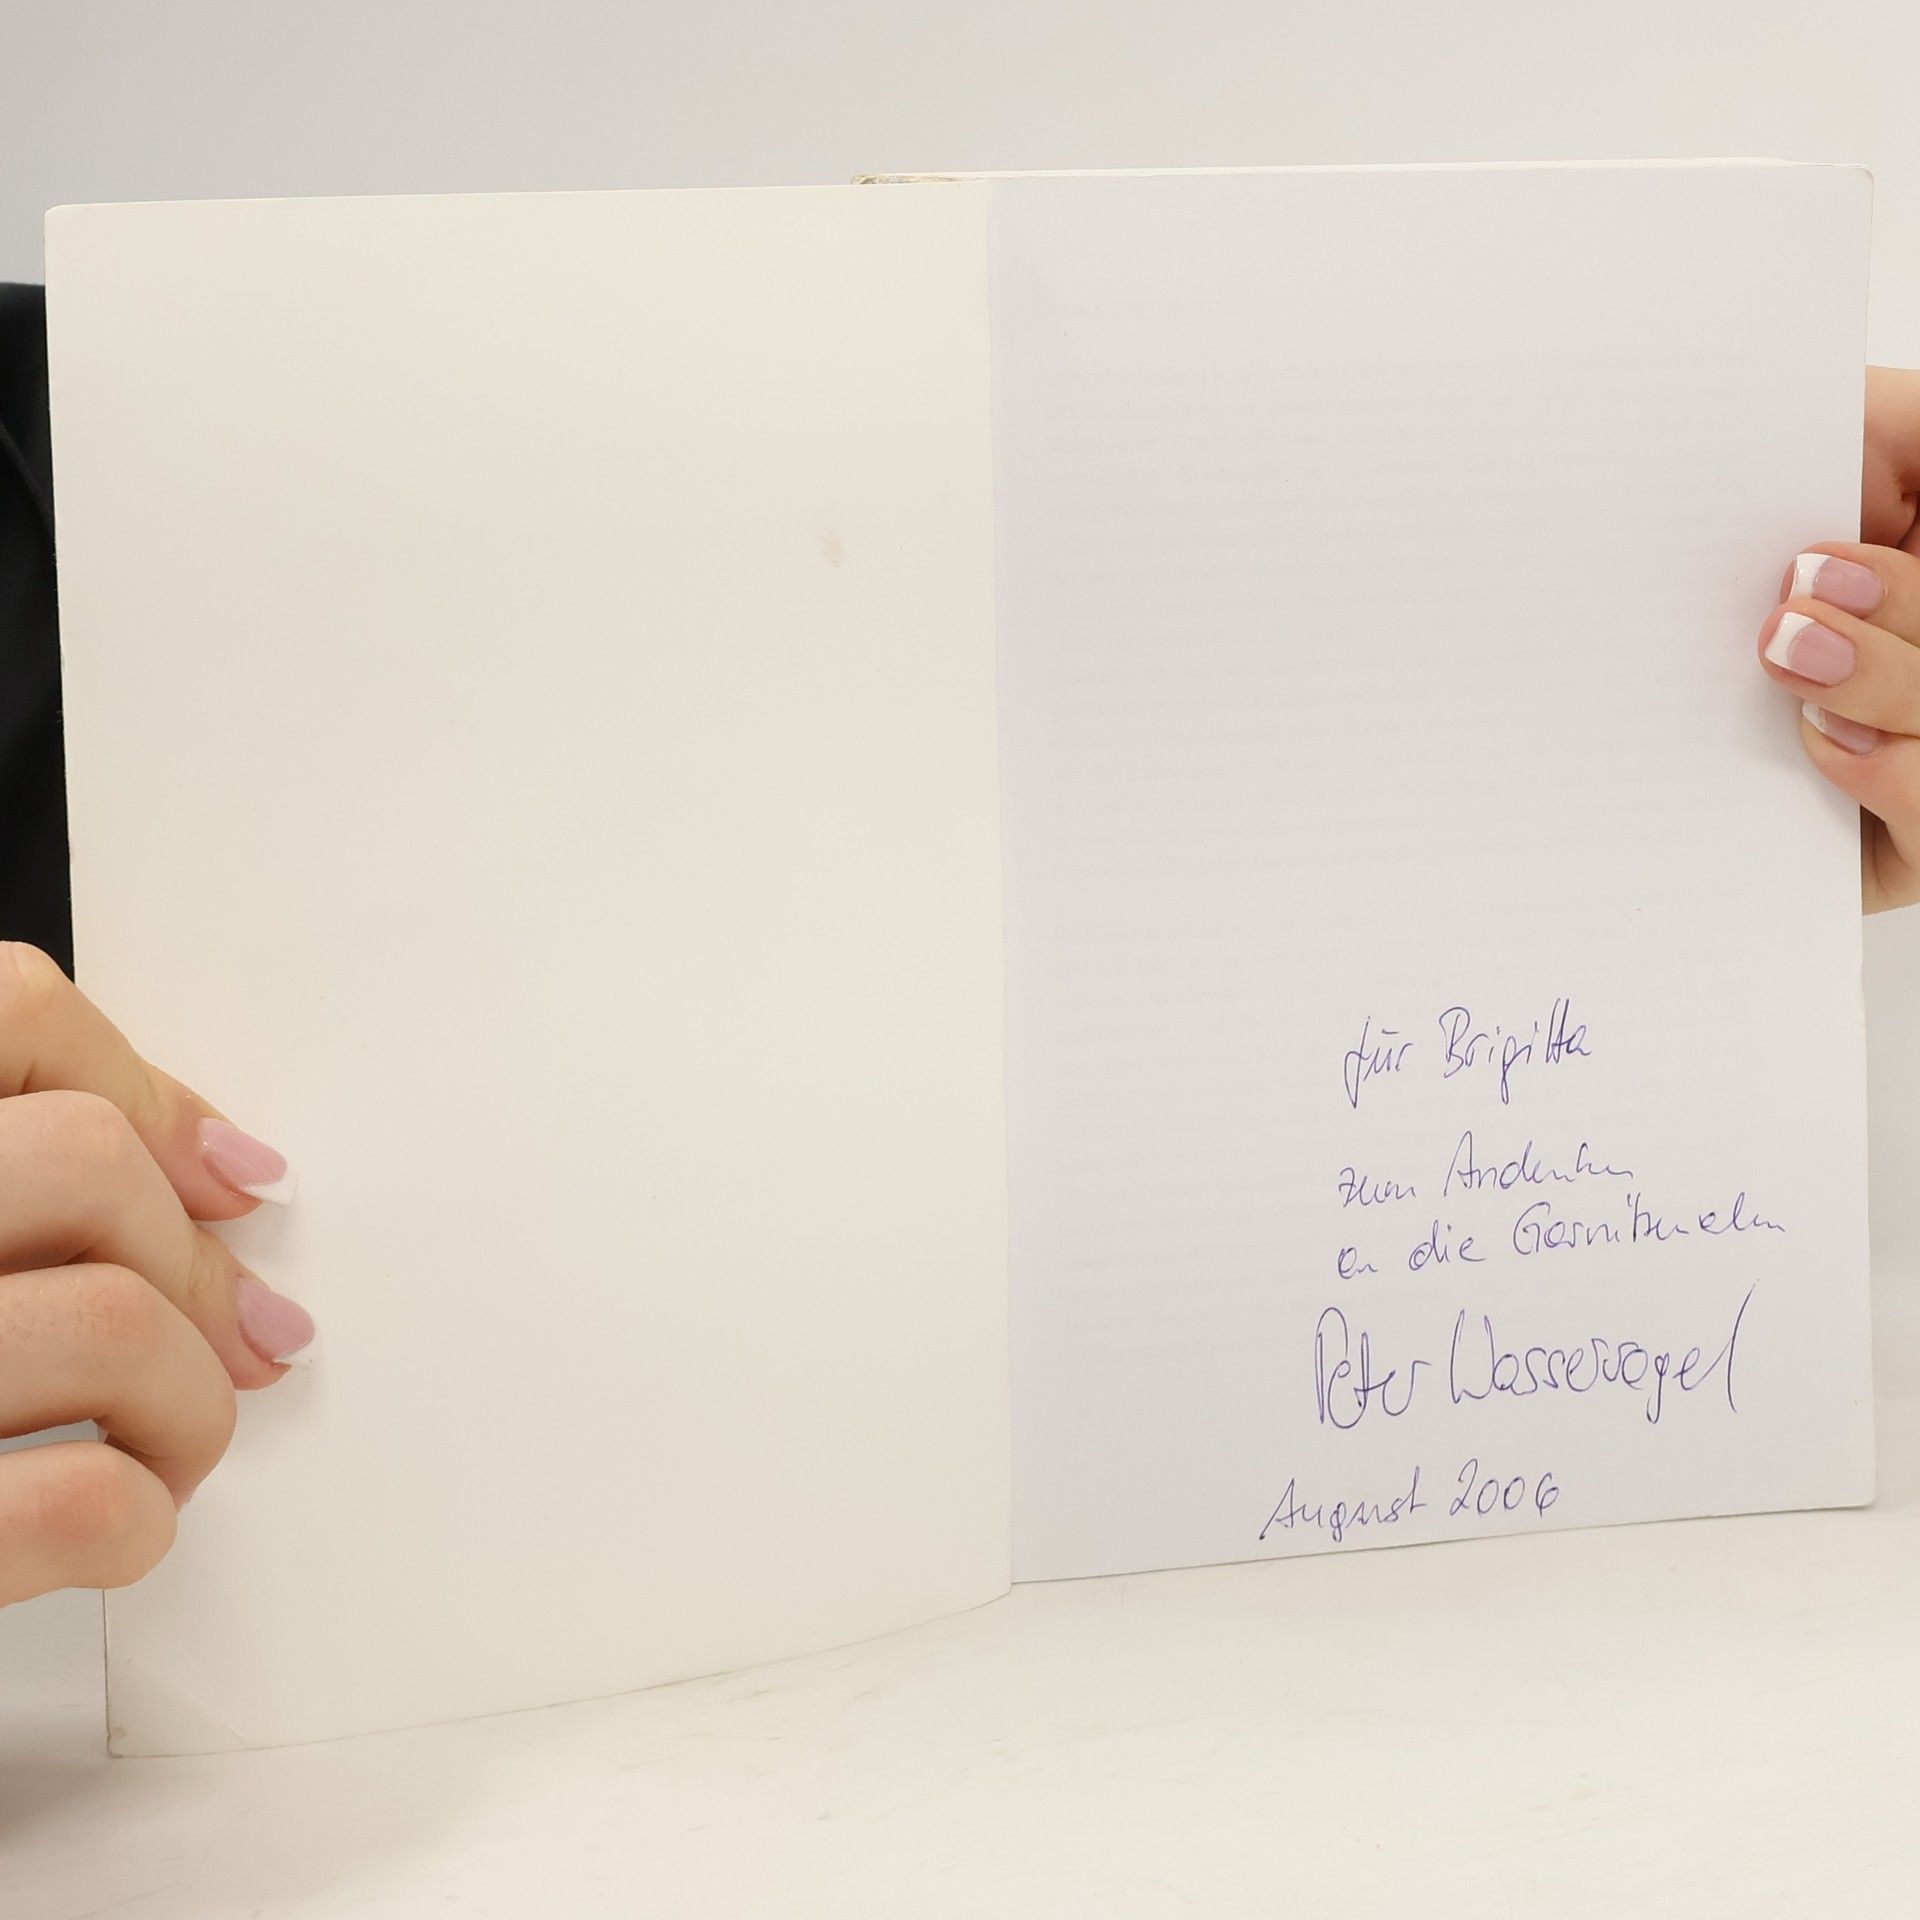 für Brigitta
zum Andenken
an die Garnitzenalm
Peter Wasservogel
August 2006